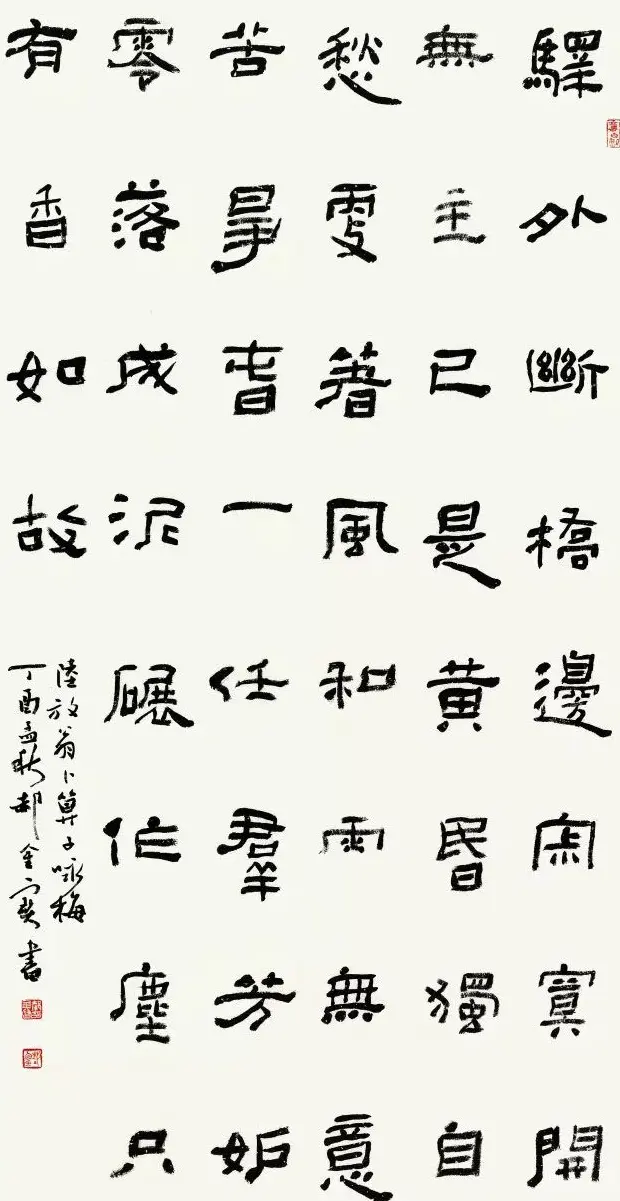 驛外斷橋邊寂寞開
無主已是黃昏獨自
愁更著風和雨無意
苦爭春一任羣芳妒
零落成泥碾作塵只
有香如故
陸放翁卜算子咏梅
丁酉孟秋郝金寶書